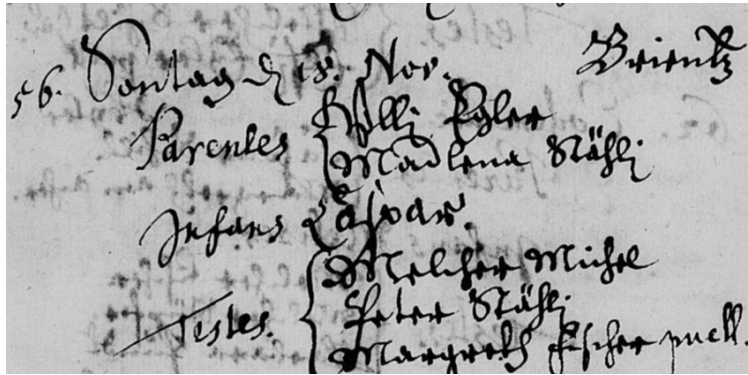 56. Sontag d 18. Nov. Brientz
Parentes Ulli Egler
Madlena Stähli
Infans Caspar.
Melcher Michel
Testes. Peter Stähli
Margreth Fischer puell.